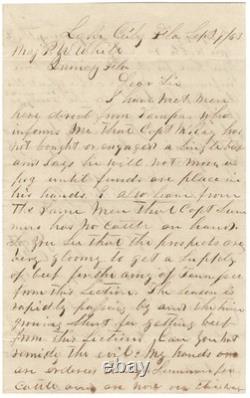 Lake City Fla Sept 9/63
Maj P. W. White
Quincy Fla
Dear Sir
I have met men
here direct from Tampa who
informs me that Capt McKay has
not bought or engaged a single beef
and says he will not move a
peg until funds are place in
his hands. I also learn from
the same men that Capt Sum
mers has no cattle on hand.
To me Sir that the prospects are
very gloomy to get a supply
of beef for the army of
from this section. The season is
rapidly passing by and the time
growing short for getting beef
from this section. Can you not
remide the evil. My hands are
on orders Summerlin for
cattle and on
ebay